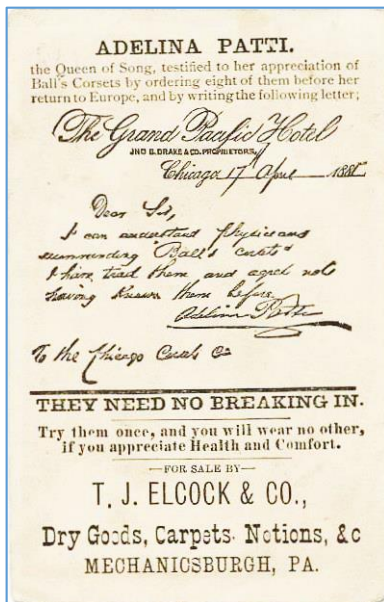 ADELINA PATTI.
the Queen of Song, testified to her appreciation of
Ball's Corsets by ordering eight of them before her
return to Europe, and by writing the following letter;
The Grand Pacific Hotel
JNO B. DRAKE & CO. PROPRIETORS,
Chicago 17 April
Dear Sir,
I can understand physicians
Ball's
I have tried them and not
having known them before.
Adelina Patti
To the Chicago Co
THEY NEED NO BREAKING IN.
Try them once, and you will wear no other,
if you appreciate Health and Comfort.
—FOR SALE BY—
T. J. ELCOCK & CO.,
Dry Goods, Carpets. Notions, &c
MECHANICSBURGH, PA.